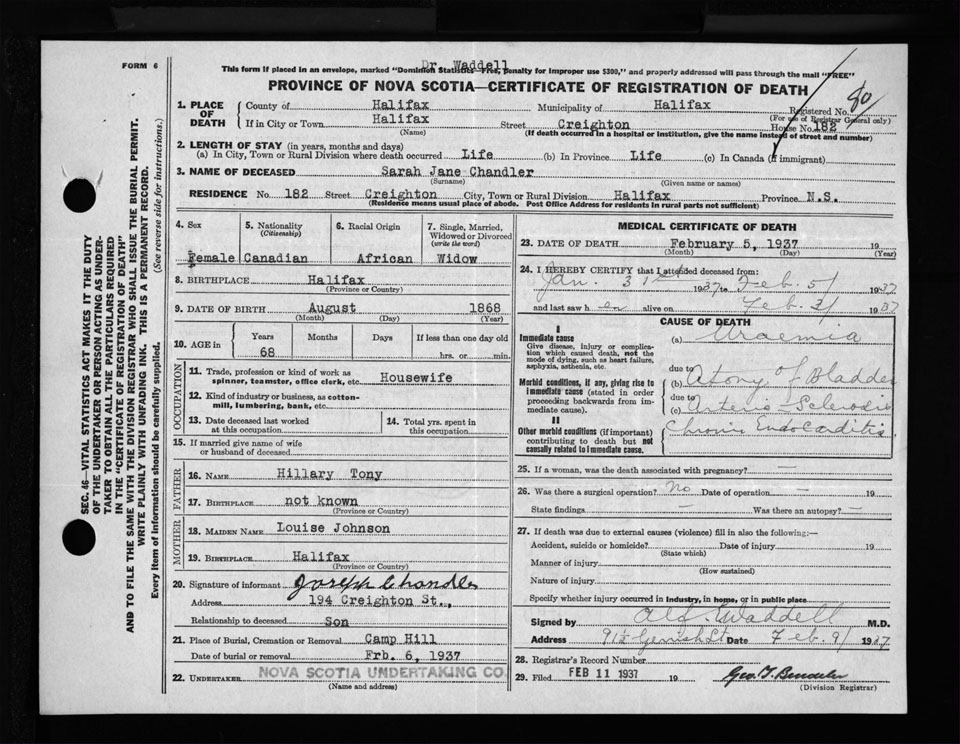 FORM 6
Dr. Waddell
This form if placed in an envelope, marked "Dominion Statistics—Free, penalty for improper use $300," and properly addressed will pass through the mail "FREE"
PROVINCE OF NOVA SCOTIA—CERTIFICATE OF REGISTRATION OF DEATH
1. PLACE OF DEATH
County of Halifax Municipality of Halifax Registered No. 80
(For use of Registrar General only)
If in City or Town Halifax Street Creighton House No. 182
(Name) (If death occurred in a hospital or institution, give the name instead of street and number)
2. LENGTH OF STAY (in years, months and days)
(a) In City, Town or Rural Division where death occurred Life (b) In Province Life (c) In Canada (if immigrant)
3. NAME OF DECEASED Sarah Jane Chandler
(Surname) (Given name or names)
RESIDENCE No. 182 Street Creighton City, Town or Rural Division Halifax Province N.S.
(Residence means usual place of abode. Post Office Address for residents in rural parts not sufficient)
4. Sex
Female
5. Nationality
(Citizenship)
Canadian
6. Racial Origin
African
7. Single, Married, Widowed or Divorced
(write the word)
Widow
8. BIRTHPLACE Halifax
(Province or Country)
9. DATE OF BIRTH August 1868
(Month) (Day) (Year)
10. AGE in
Years Months Days If less than one day old
68 hrs. or min.
OCCUPATION
11. Trade, profession or kind of work as
spinner, teamster, office clerk, etc. Housewife
12. Kind of industry or business, as cotton-
mill, lumbering, bank, etc.
13. Date deceased last worked
at this occupation
14. Total yrs. spent in
this occupation
15. If married give name of wife
or husband of deceased
FATHER
16. NAME Hillary Tony
17. BIRTHPLACE not known
(Province or Country)
MOTHER
18. MAIDEN NAME Louise Johnson
19. BIRTHPLACE Halifax
(Province or Country)
20. Signature of informant Joseph Chandler
Address 194 Creighton St.,
Relationship to deceased Son
21. Place of Burial, Cremation or Removal Camp Hill
Date of burial or removal Frb. 6, 1937
22. UNDERTAKER NOVA SCOTIA UNDERTAKING CO
(Name and address)
MEDICAL CERTIFICATE OF DEATH
23. DATE OF DEATH February 5, 1937 19
(Month) (Day) (Year)
24. I HEREBY CERTIFY that I attended deceased from:
Jan. 31st 1937 to Feb. 5/ 1937
and last saw h er alive on Feb. 3/ 1937
CAUSE OF DEATH
I
Immediate cause
Give disease, injury or complica-
tion which caused death, not the
mode of dying, such as heart failure,
asphyxia, asthenia, etc.
(a) Uraemia
due to
Morbid conditions, if any, giving rise to
immediate cause (stated in order
proceeding backwards from im-
mediate cause).
(b) Atony of Bladder
due to
(c) Arterio-Sclerosis
II
Other morbid conditions (if important)
contributing to death but not
causally related to immediate cause.
Chronic Endocarditis
25. If a woman, was the death associated with pregnancy? —
26. Was there a surgical operation? No Date of operation — 19
State findings — Was there an autopsy? —
27. If death was due to external causes (violence) fill in also the following:—
Accident, suicide or homicide? Date of injury 19
(State which)
Manner of injury
(How sustained)
Nature of injury
Specify whether injury occurred in industry, in home, or in public place
Signed by Alf. Waddell M.D.
Address 91½ Gerrish St Date Feb. 9/ 1937
28. Registrar's Record Number
29. Filed FEB 11 1937
(Division Registrar)
SEC. 46—VITAL STATISTICS ACT MAKES IT THE DUTY
OF THE UNDERTAKER OR PERSON ACTING AS UNDER-
TAKER TO OBTAIN ALL THE PARTICULARS REQUIRED
IN THE "CERTIFICATE OF REGISTRATION OF DEATH"
AND TO FILE THE SAME WITH THE DIVISION REGISTRAR WHO SHALL ISSUE THE BURIAL PERMIT.
WRITE PLAINLY WITH UNFADING INK. THIS IS A PERMANENT RECORD.
Every item of information should be carefully supplied. (See reverse side for instructions.)